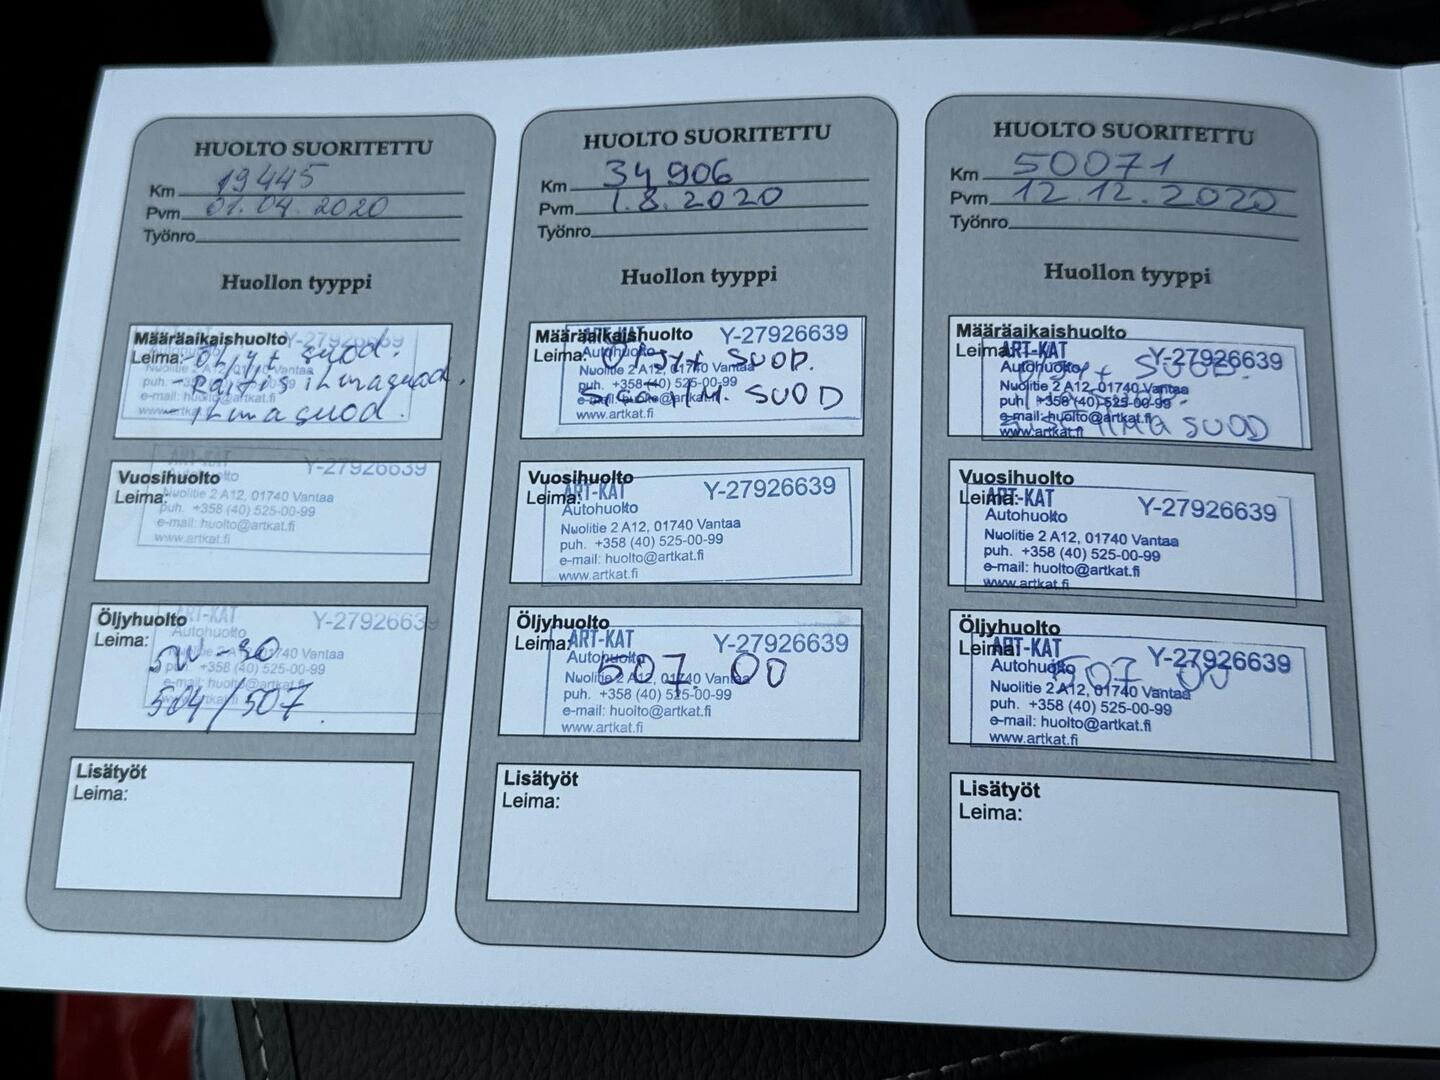 HUOLTO SUORITETTU
Km 19445
Pvm 01.04.2020
Työnro
Huollon tyyppi
Määräaikaishuolto
Y-27926639
Leima: - Öljy + suod.
Autohuolto
Nuolitie 2 A12, 01740 Vantaa
- Raitis ilmasuod.
puh. +358 (40) 525-00-99
e-mail: huolto@artkat.fi
- ilmasuod.
www.artkat.fi
Vuosihuolto
ART-KAT Y-27926639
Leima:
Autohuolto
Nuolitie 2 A12, 01740 Vantaa
puh. +358 (40) 525-00-99
e-mail: huolto@artkat.fi
www.artkat.fi
Öljyhuolto
ART-KAT Y-27926639
Leima:
Autohuolto
5W-30
Nuolitie 2 A12, 01740 Vantaa
puh. +358 (40) 525-00-99
e-mail: huolto@artkat.fi
504/507
www.artkat.fi
Lisätyöt
Leima:
HUOLTO SUORITETTU
Km 34906
Pvm 1.8.2020
Työnro
Huollon tyyppi
Määräaikaishuolto
ART-KAT Y-27926639
Leima: Öljy+ SUOD.
Autohuolto
Nuolitie 2 A12, 01740 Vantaa
puh. +358 (40) 525-00-99
SUOD
e-mail: huolto@artkat.fi
www.artkat.fi
Vuosihuolto
Leima:
ART-KAT Y-27926639
Autohuolto
Nuolitie 2 A12, 01740 Vantaa
puh. +358 (40) 525-00-99
e-mail: huolto@artkat.fi
www.artkat.fi
Öljyhuolto
Leima:
ART-KAT Y-27926639
Autohuolto
507 00
Nuolitie 2 A12, 01740 Vantaa
puh. +358 (40) 525-00-99
e-mail: huolto@artkat.fi
www.artkat.fi
Lisätyöt
Leima:
HUOLTO SUORITETTU
Km 50071
Pvm 12.12.2020
Työnro
Huollon tyyppi
Määräaikaishuolto
Leima:
ART-KAT Y-27926639
Autohuolto
Öljy+ SUOD.
Nuolitie 2 A12, 01740 Vantaa
puh. +358 (40) 525-00-99
e-mail: huolto@artkat.fi
ILMA SUOD
www.artkat.fi
Vuosihuolto
Leima:
ART-KAT Y-27926639
Autohuolto
Nuolitie 2 A12, 01740 Vantaa
puh. +358 (40) 525-00-99
e-mail: huolto@artkat.fi
www.artkat.fi
Öljyhuolto
Leima:
ART-KAT Y-27926639
Autohuolto
507 00
Nuolitie 2 A12, 01740 Vantaa
puh. +358 (40) 525-00-99
e-mail: huolto@artkat.fi
www.artkat.fi
Lisätyöt
Leima: